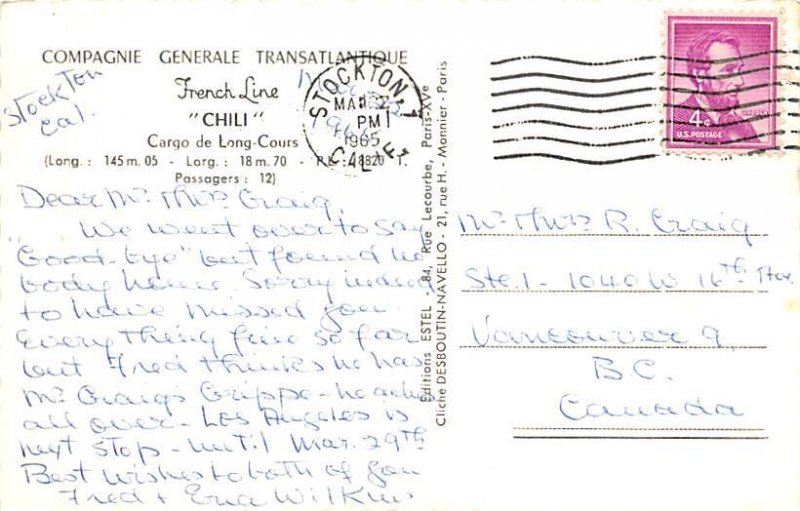 COMPAGNIE GENERALE TRANSATLANTIQUE
French Line
"CHILI"
Cargo de Long-Cours
(Long. : 145 m. 05 - Larg. : 18 m. 70 - P.L. : 8820 T.
Passagers : 12)
Stockton
Cal.
STOCKTON,
MAR 22
PM
1965
CALIF.
4¢
U.S. POSTAGE
Dear Mr & Mrs Craig,
We went over to say
"Good-bye" but found no
body home. Sorry indeed
to have missed you.
Everything fine so far
but Fred thinks he has
Mr Craigs Grippe - he aches
all over - Los Angeles is
next stop - until Mar. 29th
Best wishes to both of you
Fred + Ena Wilkins
Editions ESTEL - 84, Rue Lecourbe, Paris-XVe
Cliché DESBOUTIN-NAVELLO - 21, rue H.-Monnier - Paris
Mr & Mrs R. Craig
Ste. 1 - 1040 W 16th Ave.
Vancouver 9
B.C.
Canada